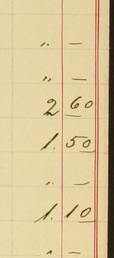 " —
" —
2 60
1. 50
" —
1. 10
" —